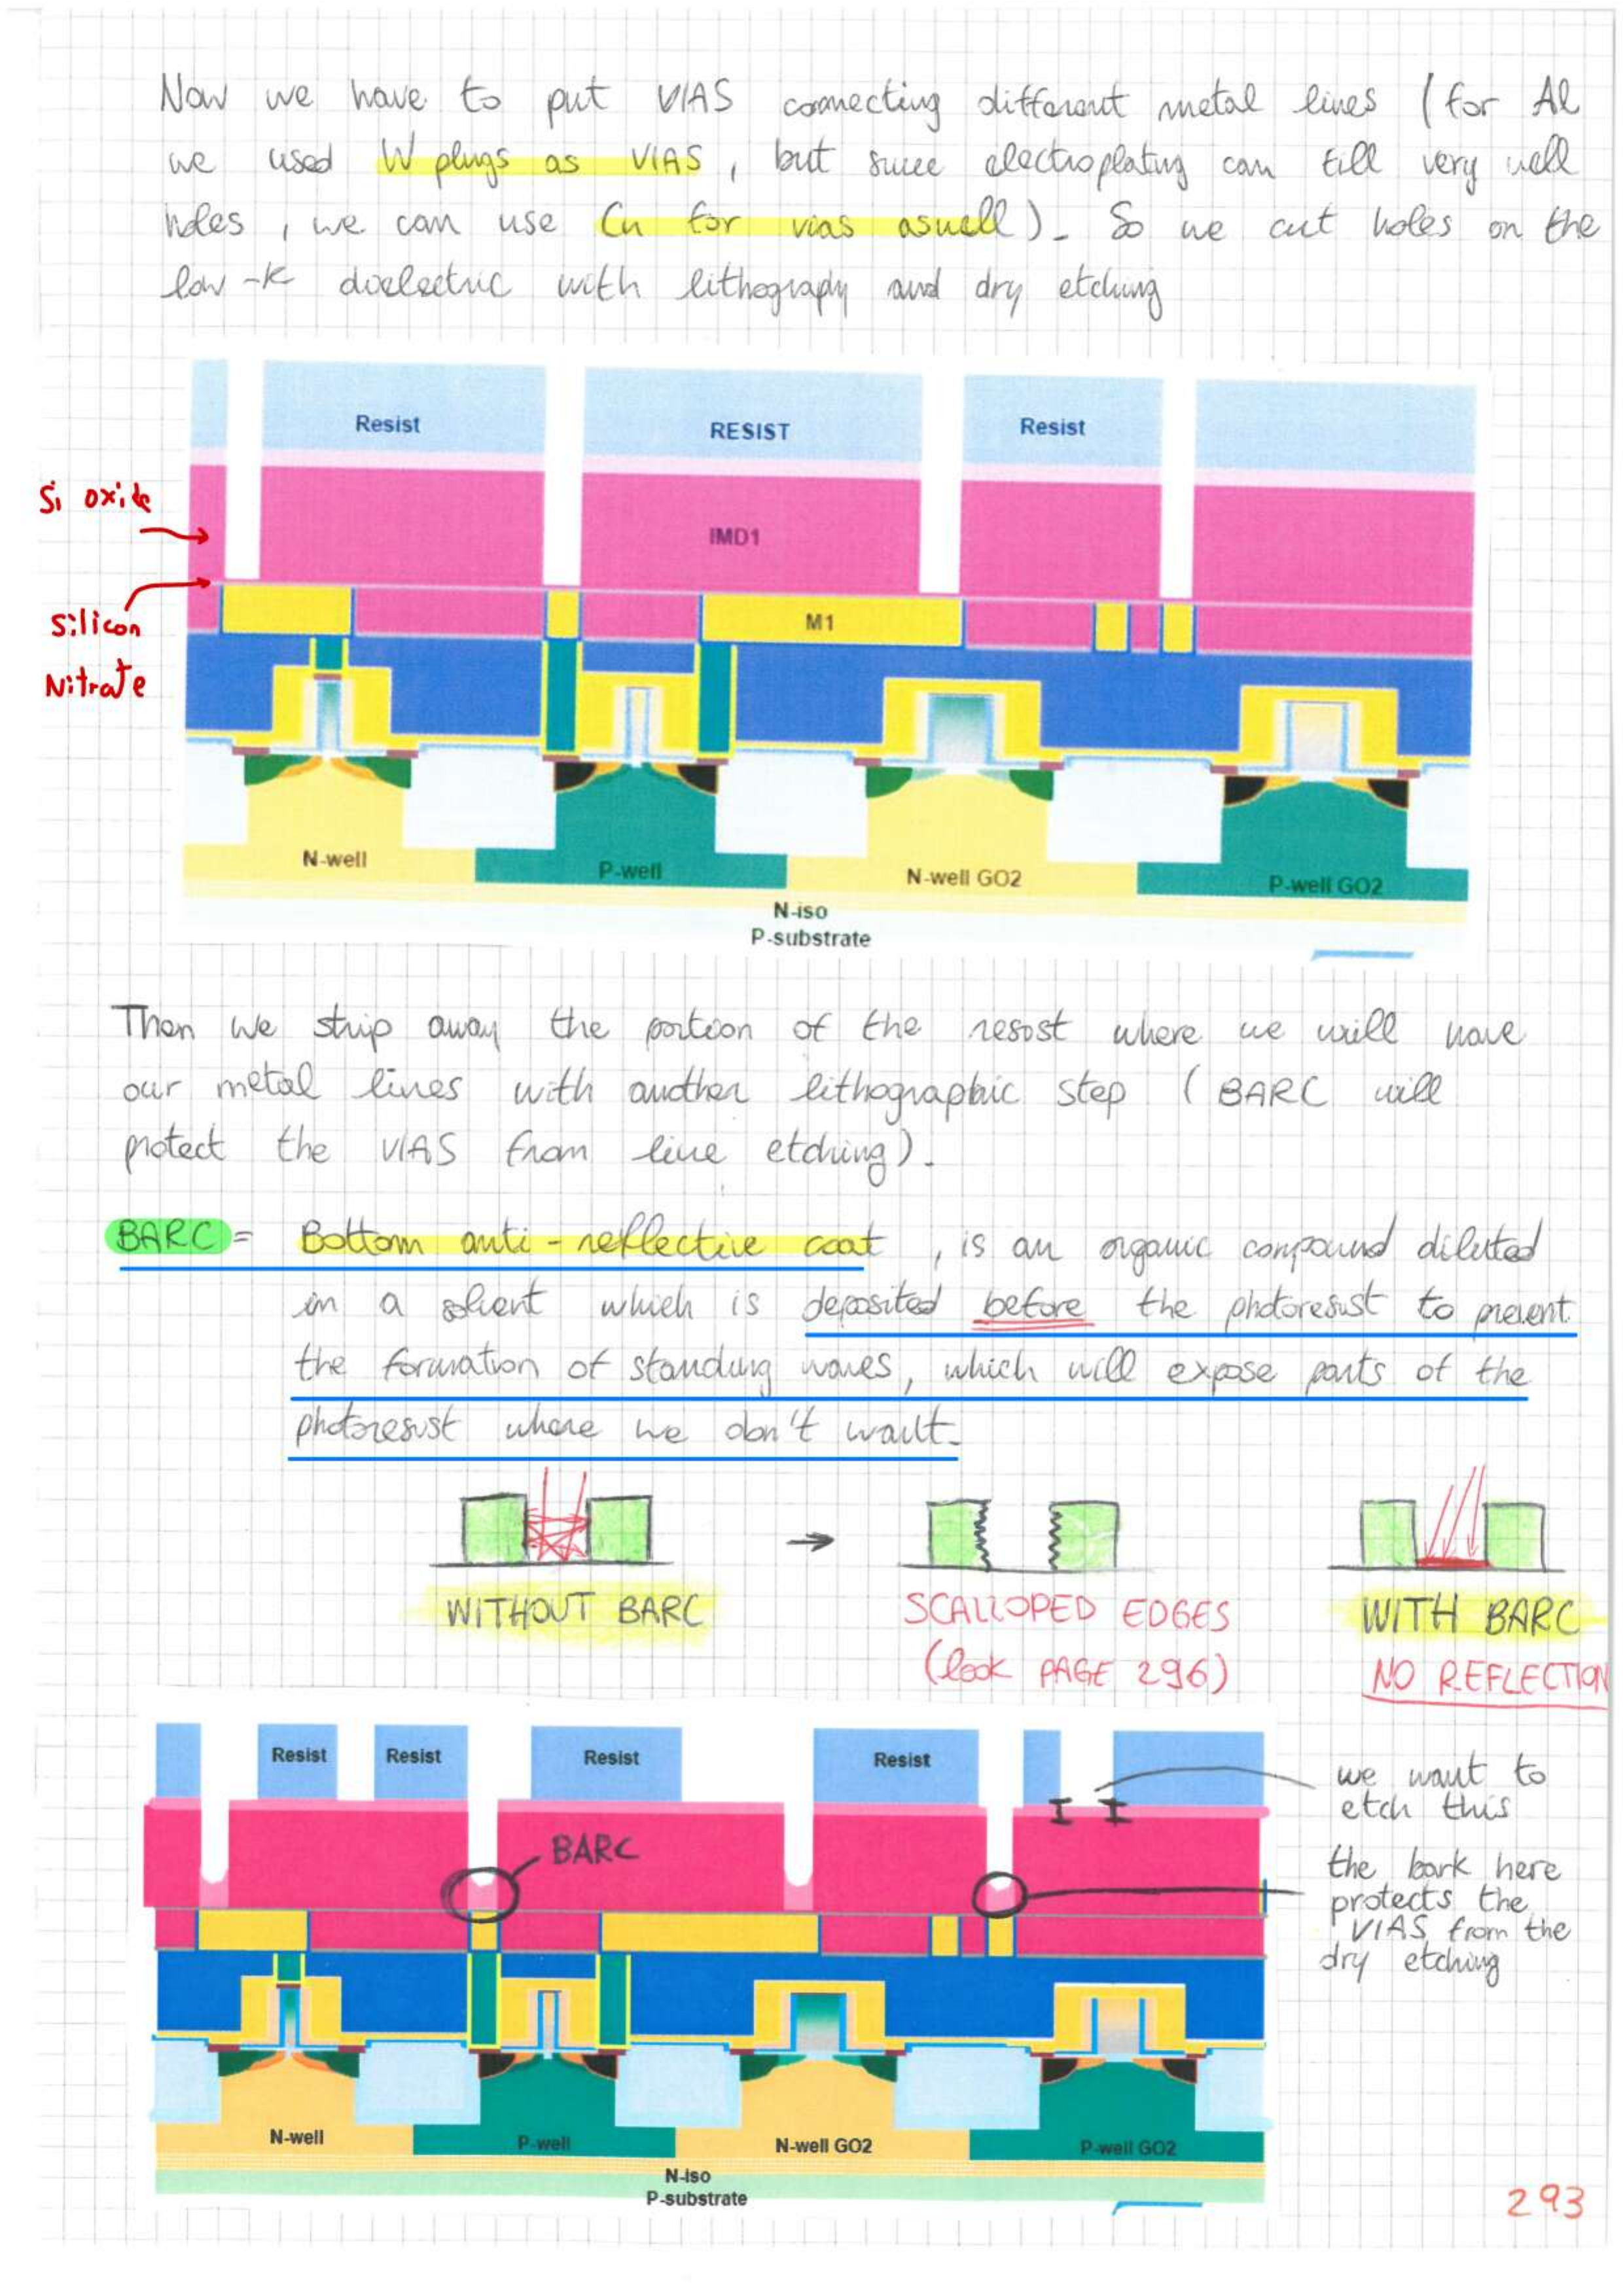 Now we have to put VIAS connecting different metal lines (for Al
we used W plugs as VIAS, but since electroplating can fill very well
holes, we can use Cu for vias aswell). So we cut holes on the
low-k dielectric with lithography and dry etching
Resist
RESIST
Resist
Si oxide
IMD1
Silicon
Nitrate
M1
N-well
P-well
N-well GO2
P-well GO2
N-iso
P-substrate
Then we strip away the portion of the resist where we will have
our metal lines with another lithographic step (BARC will
protect the VIAS from line etching).
BARC = Bottom anti-reflective coat, is an organic compound diluted
in a solvent which is deposited before the photoresist to prevent
the formation of standing waves, which will expose parts of the
photoresist where we don't want.
WITHOUT BARC
SCALLOPED EDGES
(look PAGE 296)
WITH BARC
NO REFLECTION
Resist
Resist
Resist
Resist
we want to
etch this
BARC
the bark here
protects the
VIAS from the
dry etching
N-well
P-well
N-well GO2
P-well GO2
N-iso
P-substrate
293